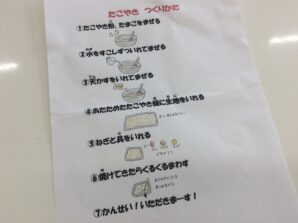 たこやき つくりかた
①たこやき粉、たまごをまぜる
②水をすこしずついれてまぜる
③天かすをいれてまぜる
④あたためたたこやき機に生地をいれる
⑤ねぎと具をいれる
⑥焼けてきたらくるくるまわす
⑦かんせい!いただきまーす!